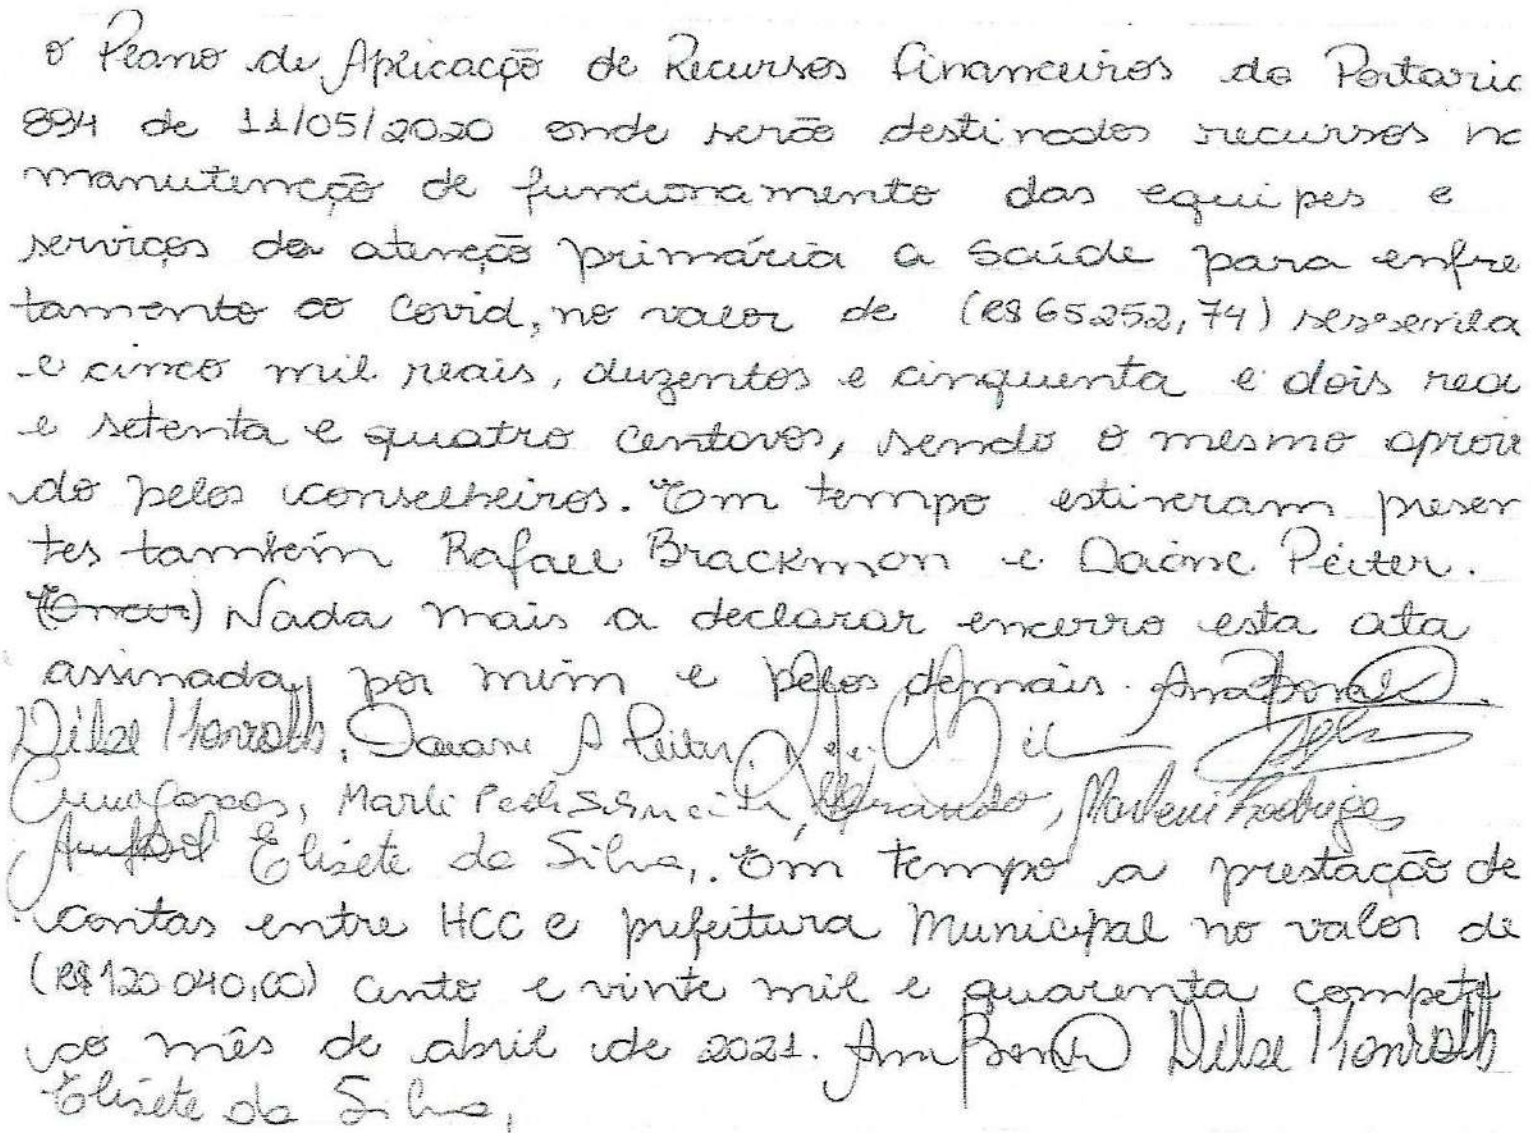 o Plano de Aplicacção de Recursos financeiros da Portaria
894 de 11/05/2020 onde serão destinados recursos na
manutencção de funcionamento das equipes e
serviços da atenção primária a Saúde para enfre
tamento ao Covid, no valor de (R$ 65252,74) sessenta
e cinco mil reais, duzentos e cinquenta e dois rea
e setenta e quatro centavos, sendo o mesmo aprova
do pelos conselheiros. Em tempo estiveram presen
tes também Rafael Brackmon e Daiane Peiter.
Nada mais a declarar encerro esta ata
assinada por mim e pelos demais.
Dilse Daiane A Peiter
Marli Elisete da Silva, Marleni Rodrigues
Elisete da Silva,. Em tempo a prestação de
contas entre HCC e prefeitura Municipal no valor de
(R$ 120 040,00) cento e vinte mil e quarenta compete
ao mês de abril de 2021. Dilse
Elisete da Silva,